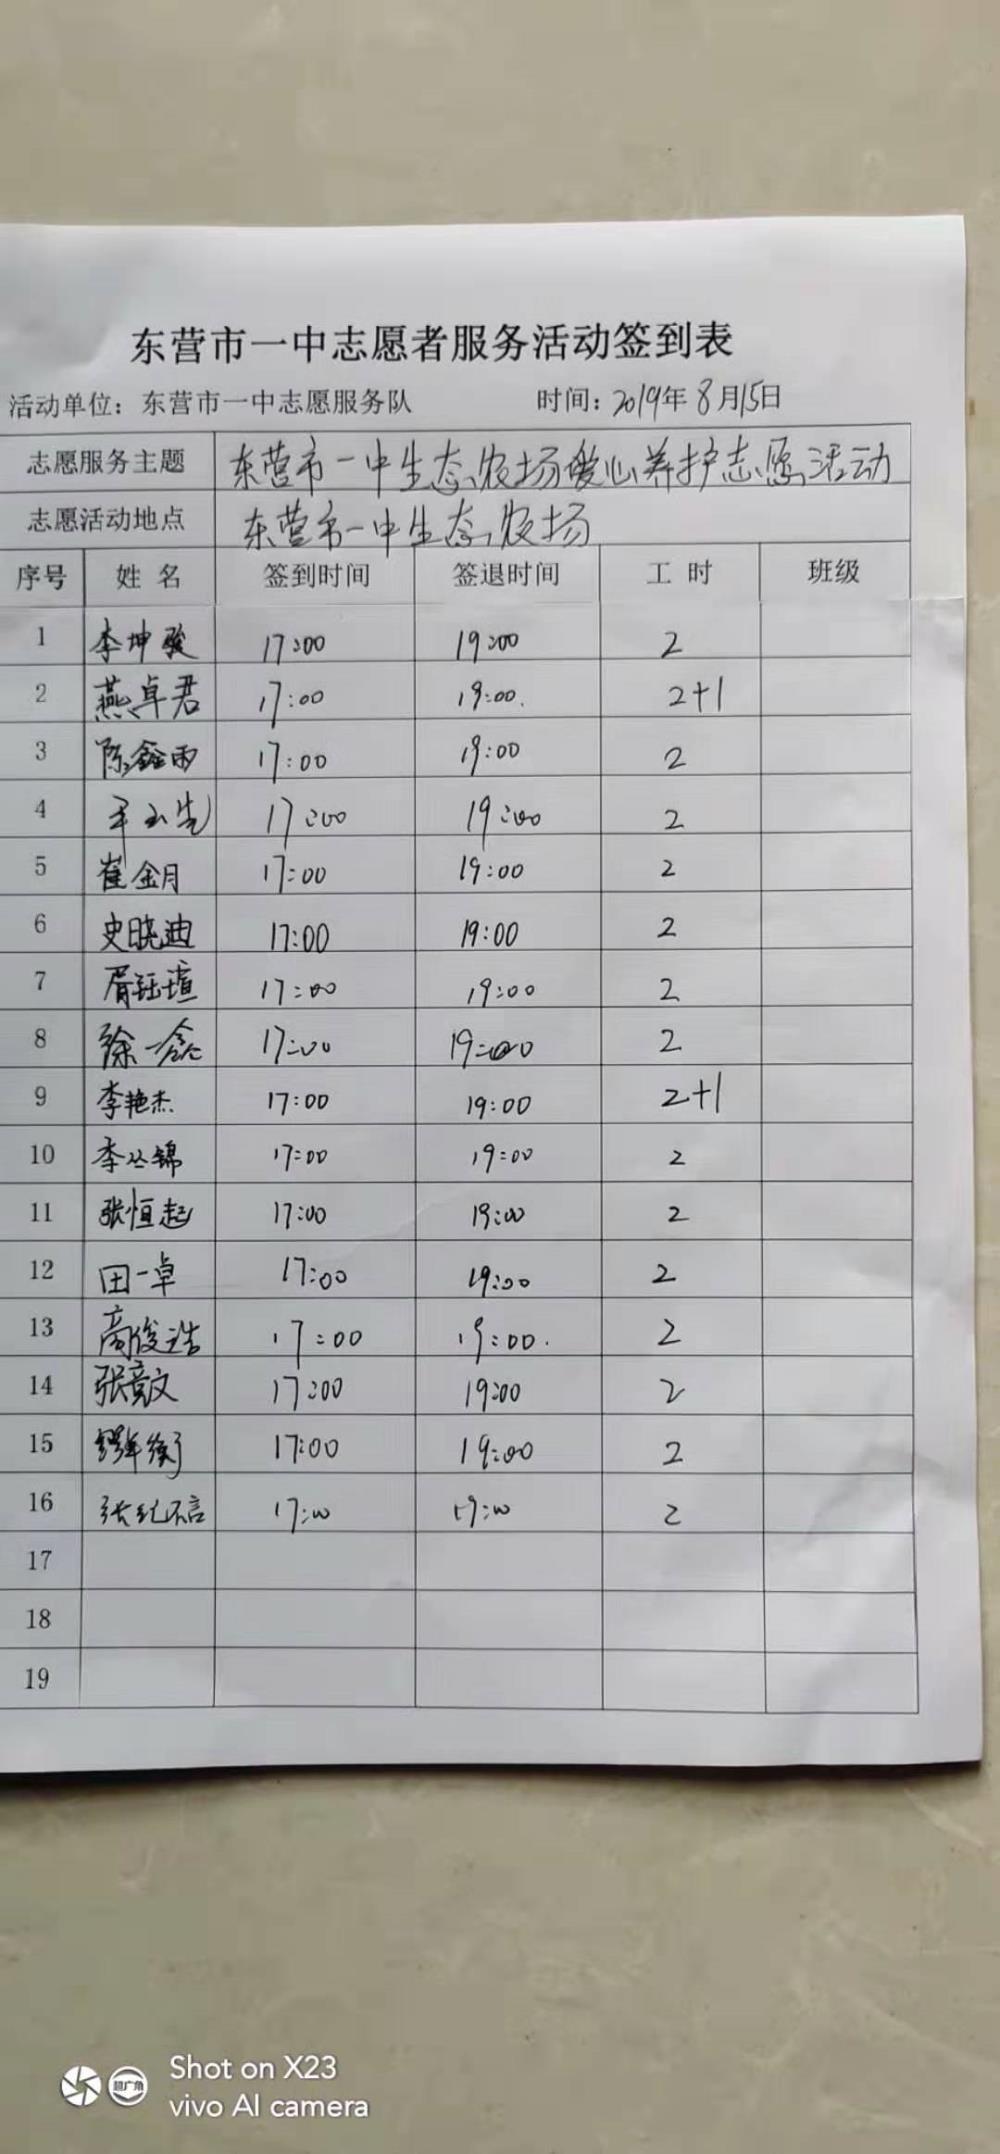 东营市一中志愿者服务活动签到表
活动单位：东营市一中志愿服务队 时间：2019年8月15日
志愿服务主题 东营市一中生态农场爱心养护志愿活动
志愿活动地点 东营市一中生态农场
序号 姓名 签到时间 签退时间 工时 班级
1 李坤骏 17:00 19:00 2
2 燕卓君 17:00 19:00. 2+1
3 陈鑫雨 17:00 19:00 2
4 17:00 19:00 2
5 崔金月 17:00 19:00 2
6 史晓迪 17:00 19:00 2
7 胥钰瑄 17:00 19:00 2
8 徐一鑫 17:00 19:00 2
9 李艳杰 17:00 19:00 2+1
10 李丛锦 17:00 19:00 2
11 张恒起 17:00 19:00 2
12 田一卓 17:00 19:00 2
13 高俊浩 17:00 19:00. 2
14 张竞文 17:00 19:00 2
15 17:00 19:00 2
16 17:00 19:00 2
17
18
19
超广角
Shot on X23
vivo AI camera